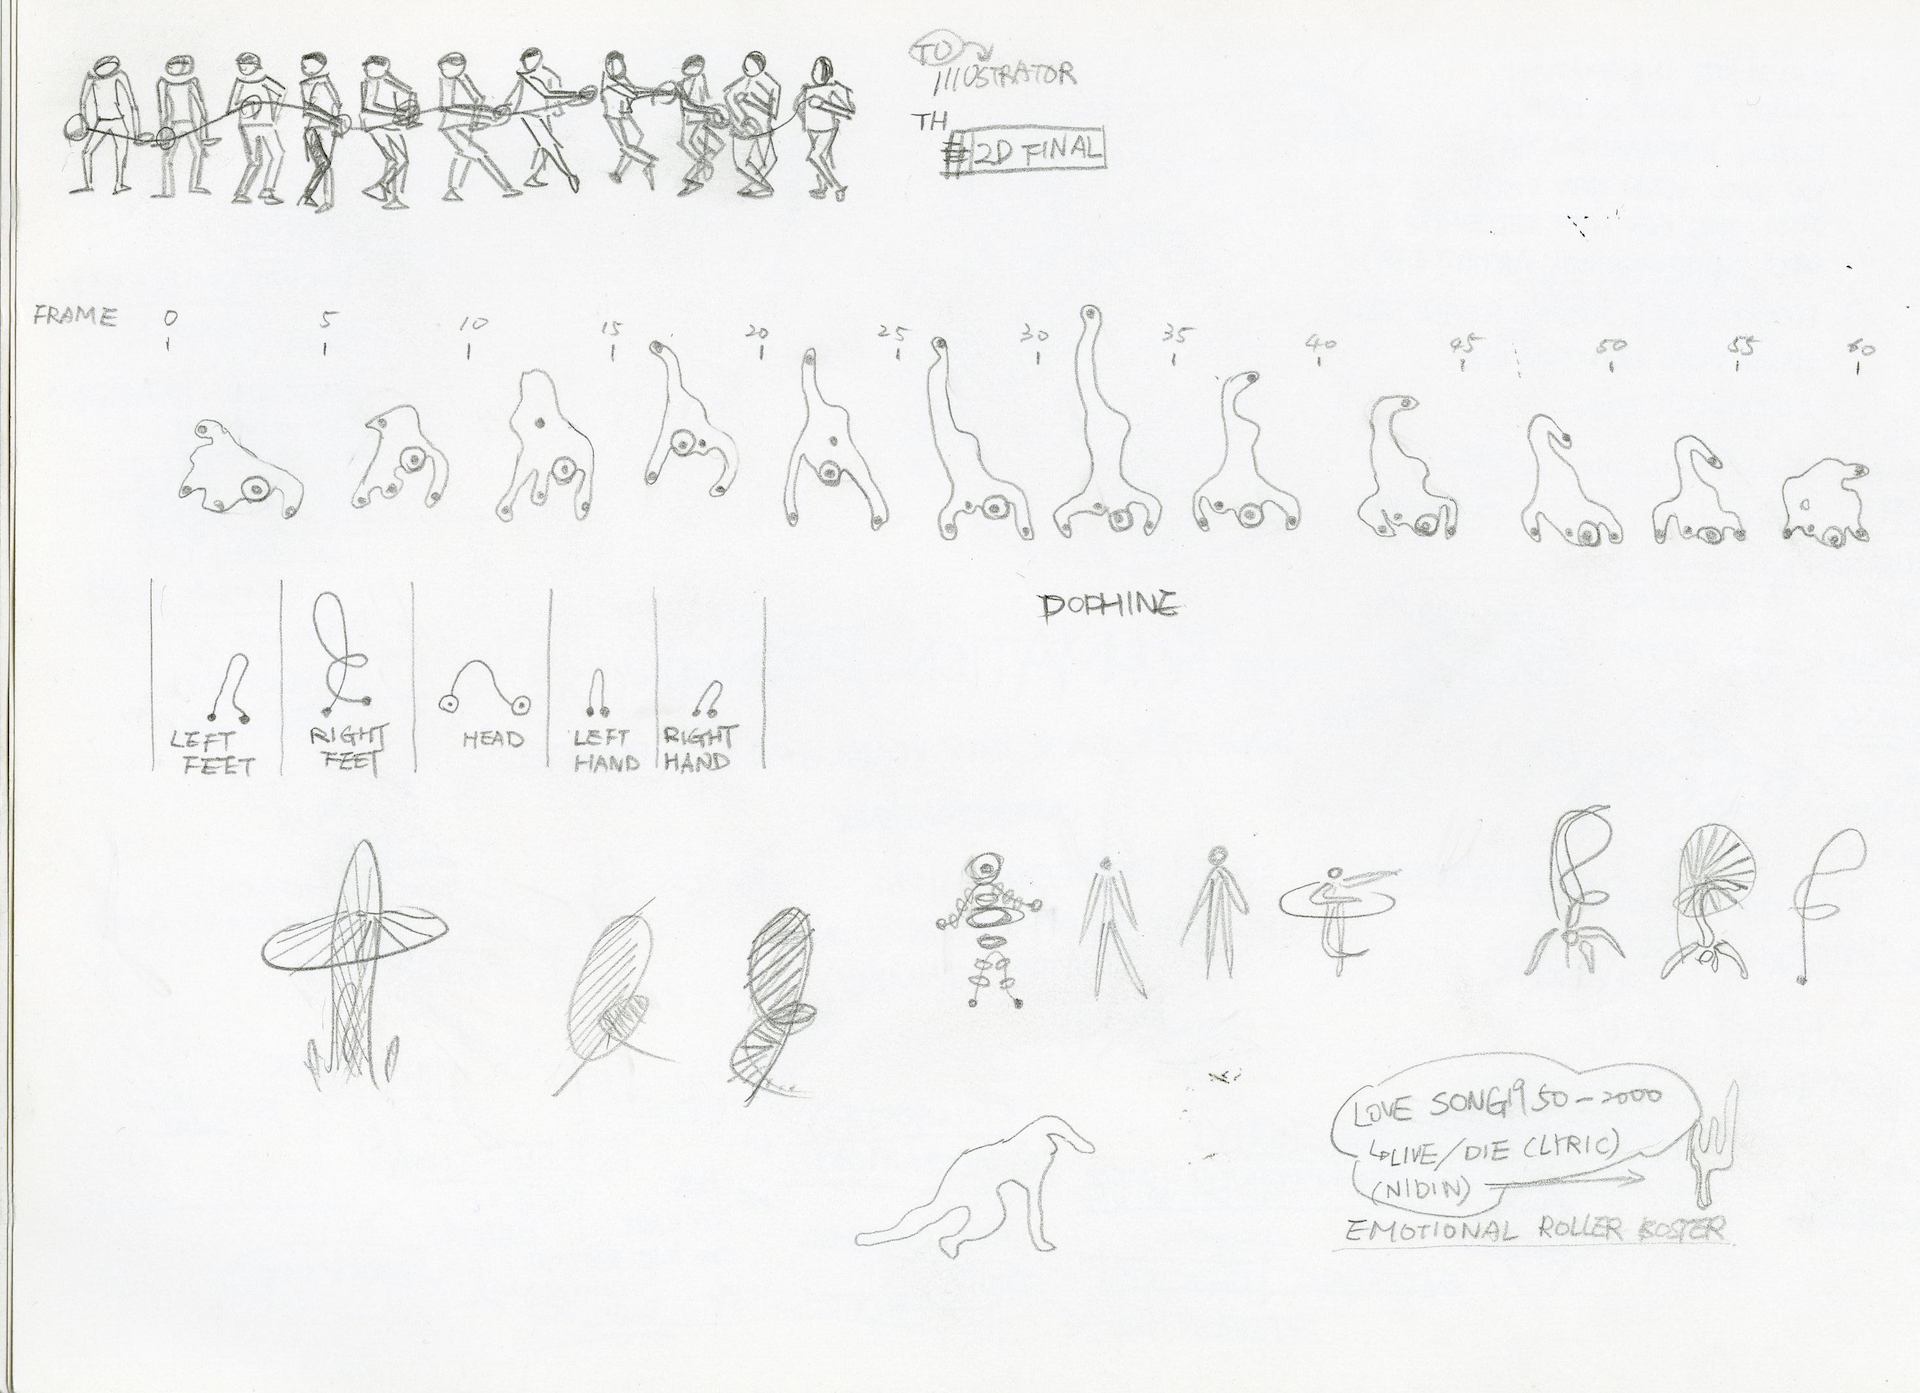 TO
IllUSTRATOR
TH
2D FINAL
FRAME 0 5 10 15 20 25 30 35 40 45 50 55 60
DOPHINE
LEFT FEET
RIGHT FEET
HEAD
LEFT HAND
RIGHT HAND
LOVE SONG 1950-2000
↳LIVE/DIE (LYRIC)
(NIDIN)
EMOTIONAL ROLLER BOSTER